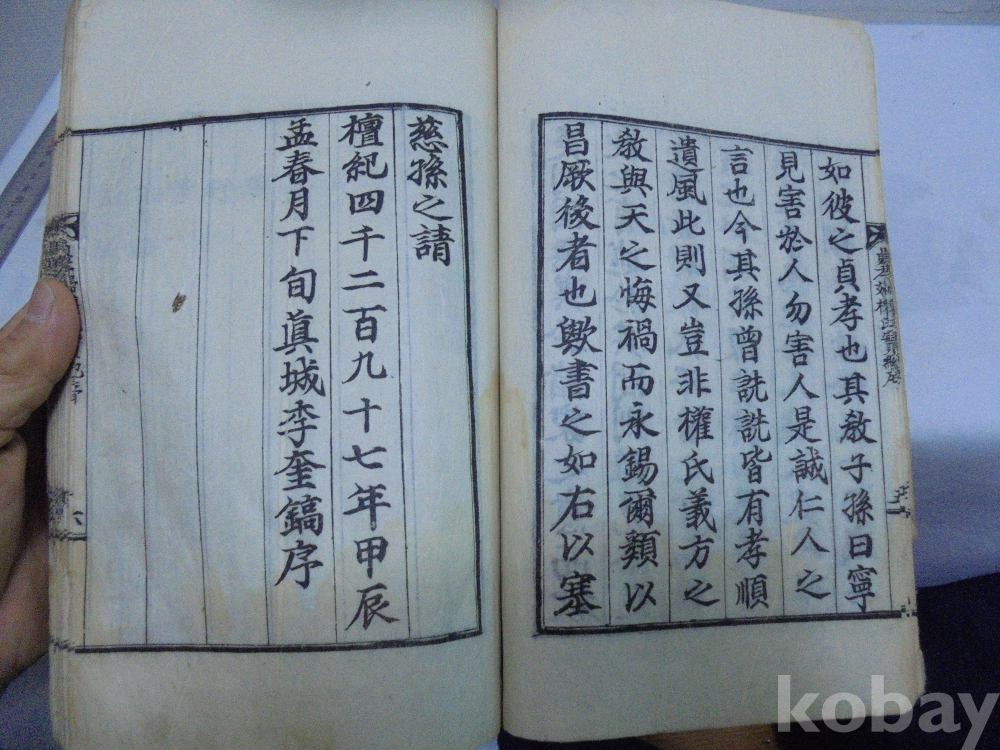 如彼之貞孝也其教子孫曰寧
見害於人勿害人是誠仁人之
言也今其孫曾詵詵皆有孝順
遺風此則又豈非權氏義方之
教與天之悔禍而永錫爾類以
昌厥後者也歟書之如右以塞
慈孫之請
檀紀四千二百九十七年甲辰
孟春月下旬眞城李奎鎬序
六
kobay